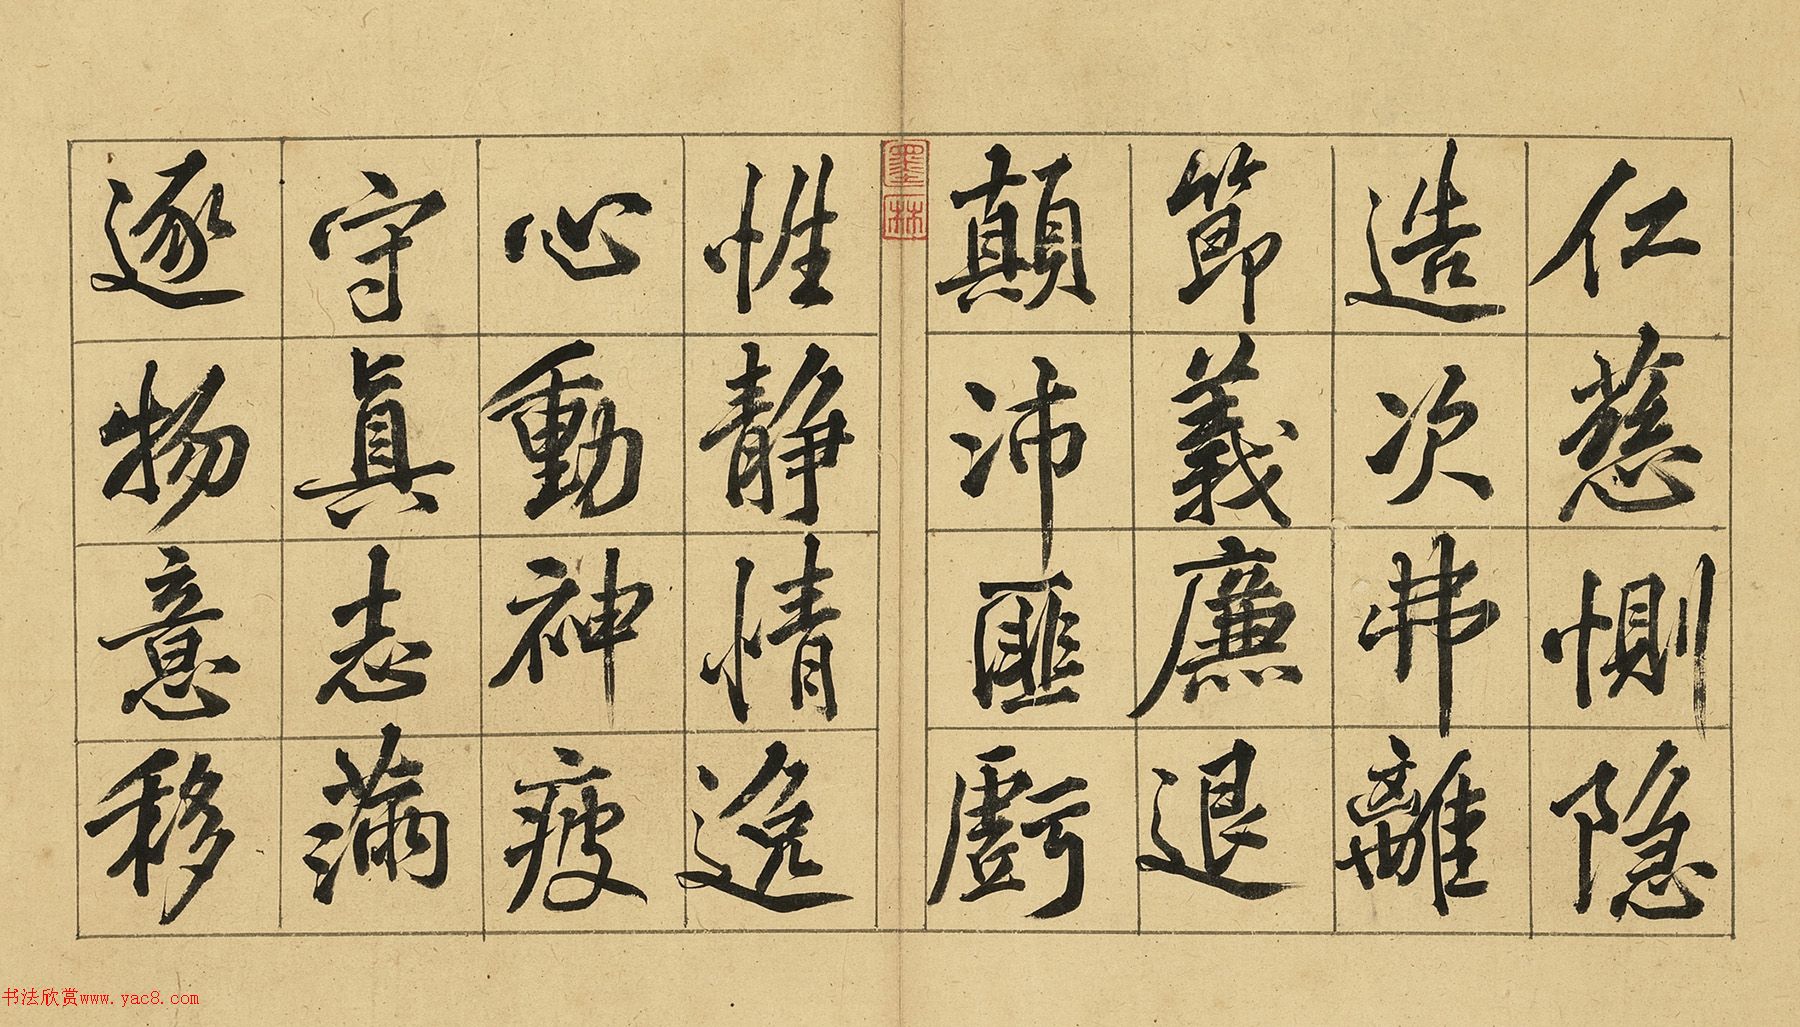 仁慈惻隐
造次弗離
節義廉退
顛沛匪虧
性静情逸
心動神疲
守真志滿
逐物意移
墨林
书法欣赏www.yac8.com